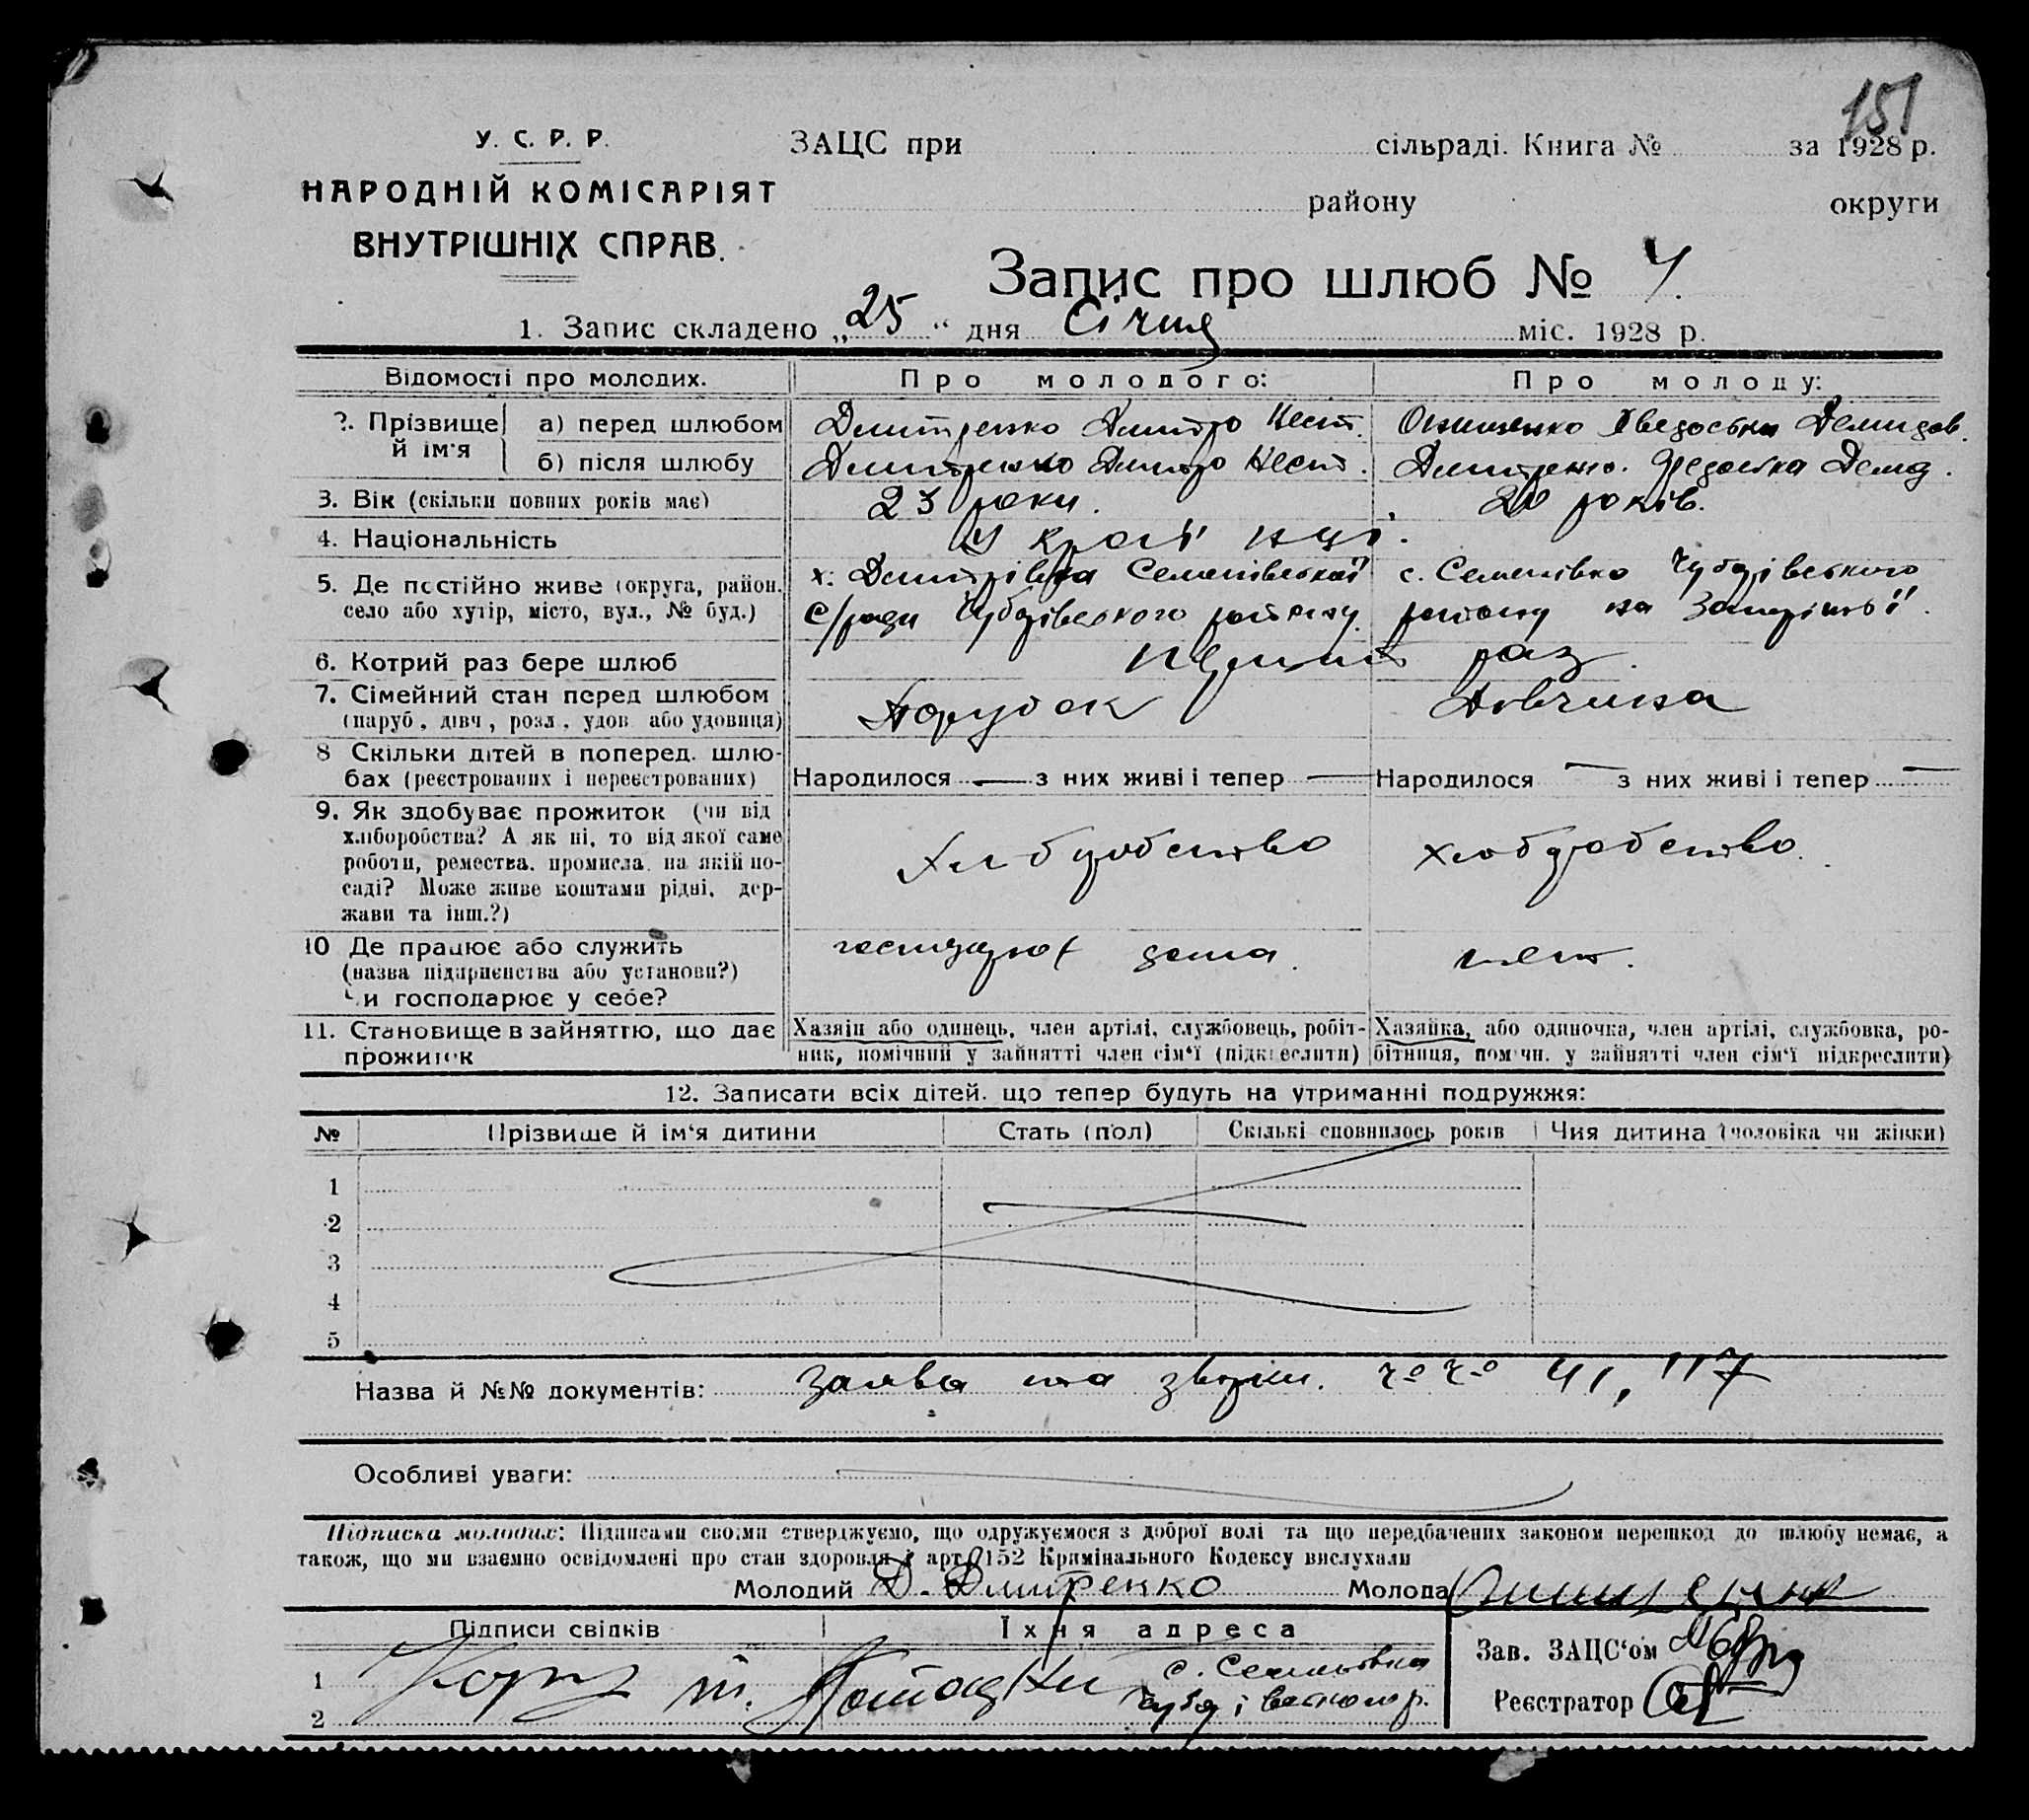 151
У. С. Р. Р.
НАРОДНІЙ КОМІСАРІЯТ
ВНУТРІШНІХ СПРАВ.
ЗАЦС при сільраді. Книга № за 1928 р.
району округи
Запис про шлюб №
1. Запис складено „25“ дня Січня міс. 1928 р.
Відомості про молодих. Про молодого: Про молоду:
2. Прізвище й ім'я
а) перед шлюбом Дмитренко Дмитро Нест. Онищенко Явдоська Демидов.
б) після шлюбу Дмитренко Дмитро Нест. Дмитренко Явдоська Демид.
3. Вік (скільки повних років має) 23 роки. 20 років.
4. Національність Українці.
5. Де постійно живе (округа, район, х. Дмитрівка Семенівської с. Семенівка Чубарівського
село або хутір, місто, вул., № буд.) с/ради Чубарівського району району на Запоріжьї.
6. Котрий раз бере шлюб перший раз.
7. Сімейний стан перед шлюбом Парубок Дівчина
(паруб., дівч., розл., удов. або удовиця)
8 Скільки дітей в поперед. шлю-
бах (реєстрованих і нереєстрованих) Народилося — з них живі і тепер — Народилося — з них живі і тепер —
9. Як здобуває прожиток (чи від
хліборобства? А як ні, то від якої саме
роботи, ремества, промисла, на якій по- хліборобство хліборобство.
саді? Може живе коштами рідні, дер-
жави та інш.?)
10 Де працює або служить дома.
(назва підприємства або установи?)
Чи господарює у себе?
11. Становище в зайняттю, що дає Хазяїн або одинець, член артілі, службовець, робіт- Хазяйка, або одиночка, член артілі, службовка, ро-
прожиток ник, помічний у зайнятті член сім'ї (підкреслити) бітниця, помічн. у зайнятті член сім'ї підкреслити)
12. Записати всіх дітей, що тепер будуть на утриманні подружжя:
№ Прізвище й ім'я дитини Стать (пол) Скількі сповнилось років Чия дитина (чоловіка чи жінки)
1
2
3
4
5
Назва й №№ документів: заява та 41, 117
Особливі уваги:
Підписка молодих: Підписами своїми стверджуємо, що одружуємося з доброї волі та що передбачених законом перешкод до шлюбу немає, а
також, що ми взаємно освідомлені про стан здоровля і арт. 152 Кримінального Кодексу вислухали
Молодий Д. Дмитренко Молода Онищенко
Підписи свідків Їхня адреса
Зав. ЗАЦС'ом
1 с. Семенівка
2 Чубарівського р.
Реєстратор